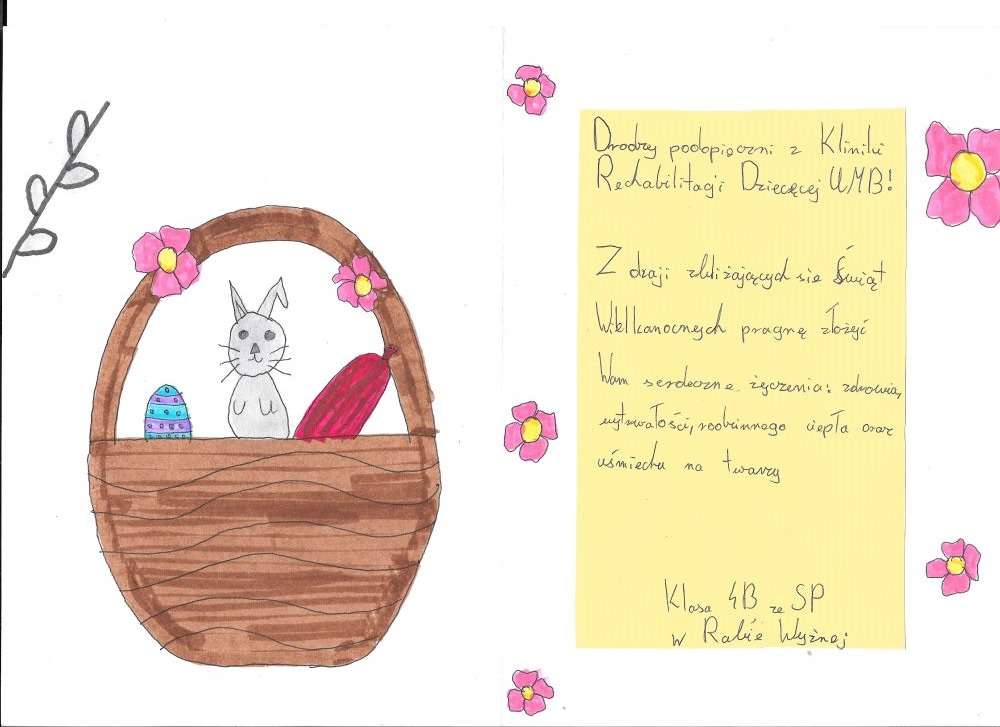 Drodzy podopieczni z Kliniki
Rechabilitacji Dziecęcej UMB!
Z okazji zbliżających się Świąt
Wielkanocnych pragnę złożyć
Wam serdeczne życzenia: zdrowia,
wytrwałości, rodzinnego ciepła oraz
uśmiechu na twarzy
Klasa 4B ze SP
w Rabie Wyżnej